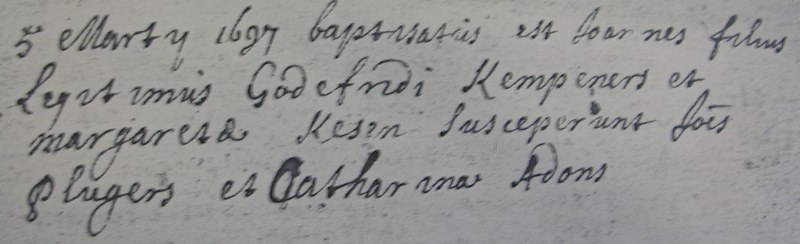 5 Martÿ 1697 baptisatus est Joannes filius
Legitimus Godefridi Kempeners et
margaretæ Kesen susceperunt Joēs
Plugers et Catharina Adons